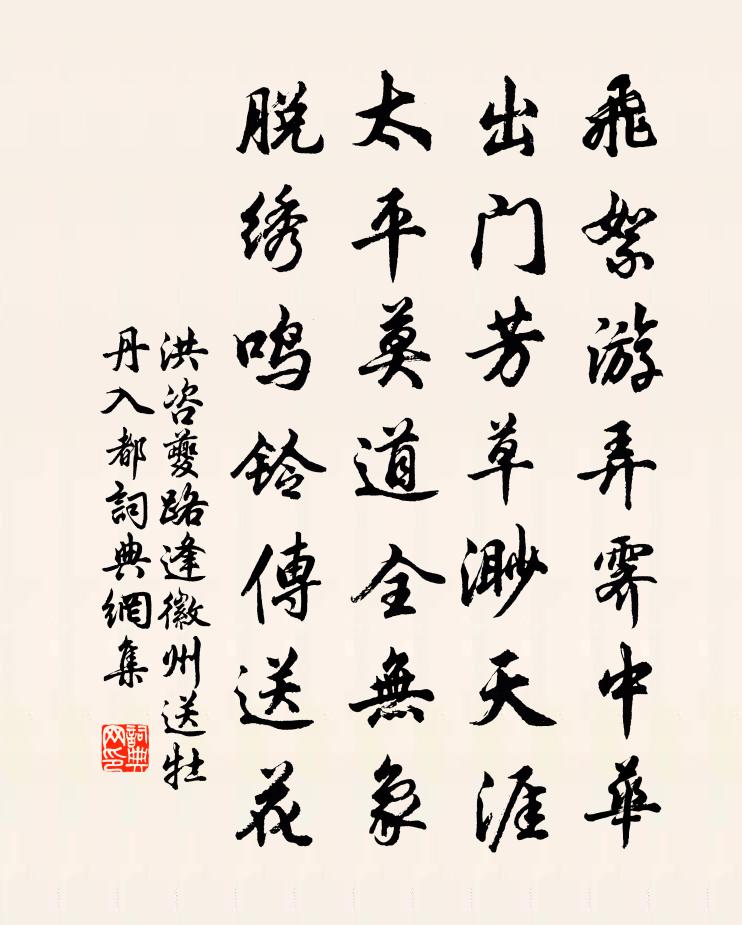 飛絮游弄霽中華
出门芳草渺天涯
太平莫道全無象
脱绣鸣鈴傳送花
洪咨夔路逢徽州送牡
丹入都詞典網集
詞典
网印